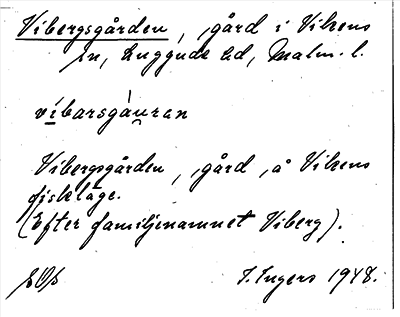 Vibergsgården, gård i Vikens
sn, Luggude hd, Malm. l.
víbarsgàu̯ran
Vibergsgården, gård på Vikens
fiskläge.
(Efter familjenamnet Viberg).
I. Ingers 1948.